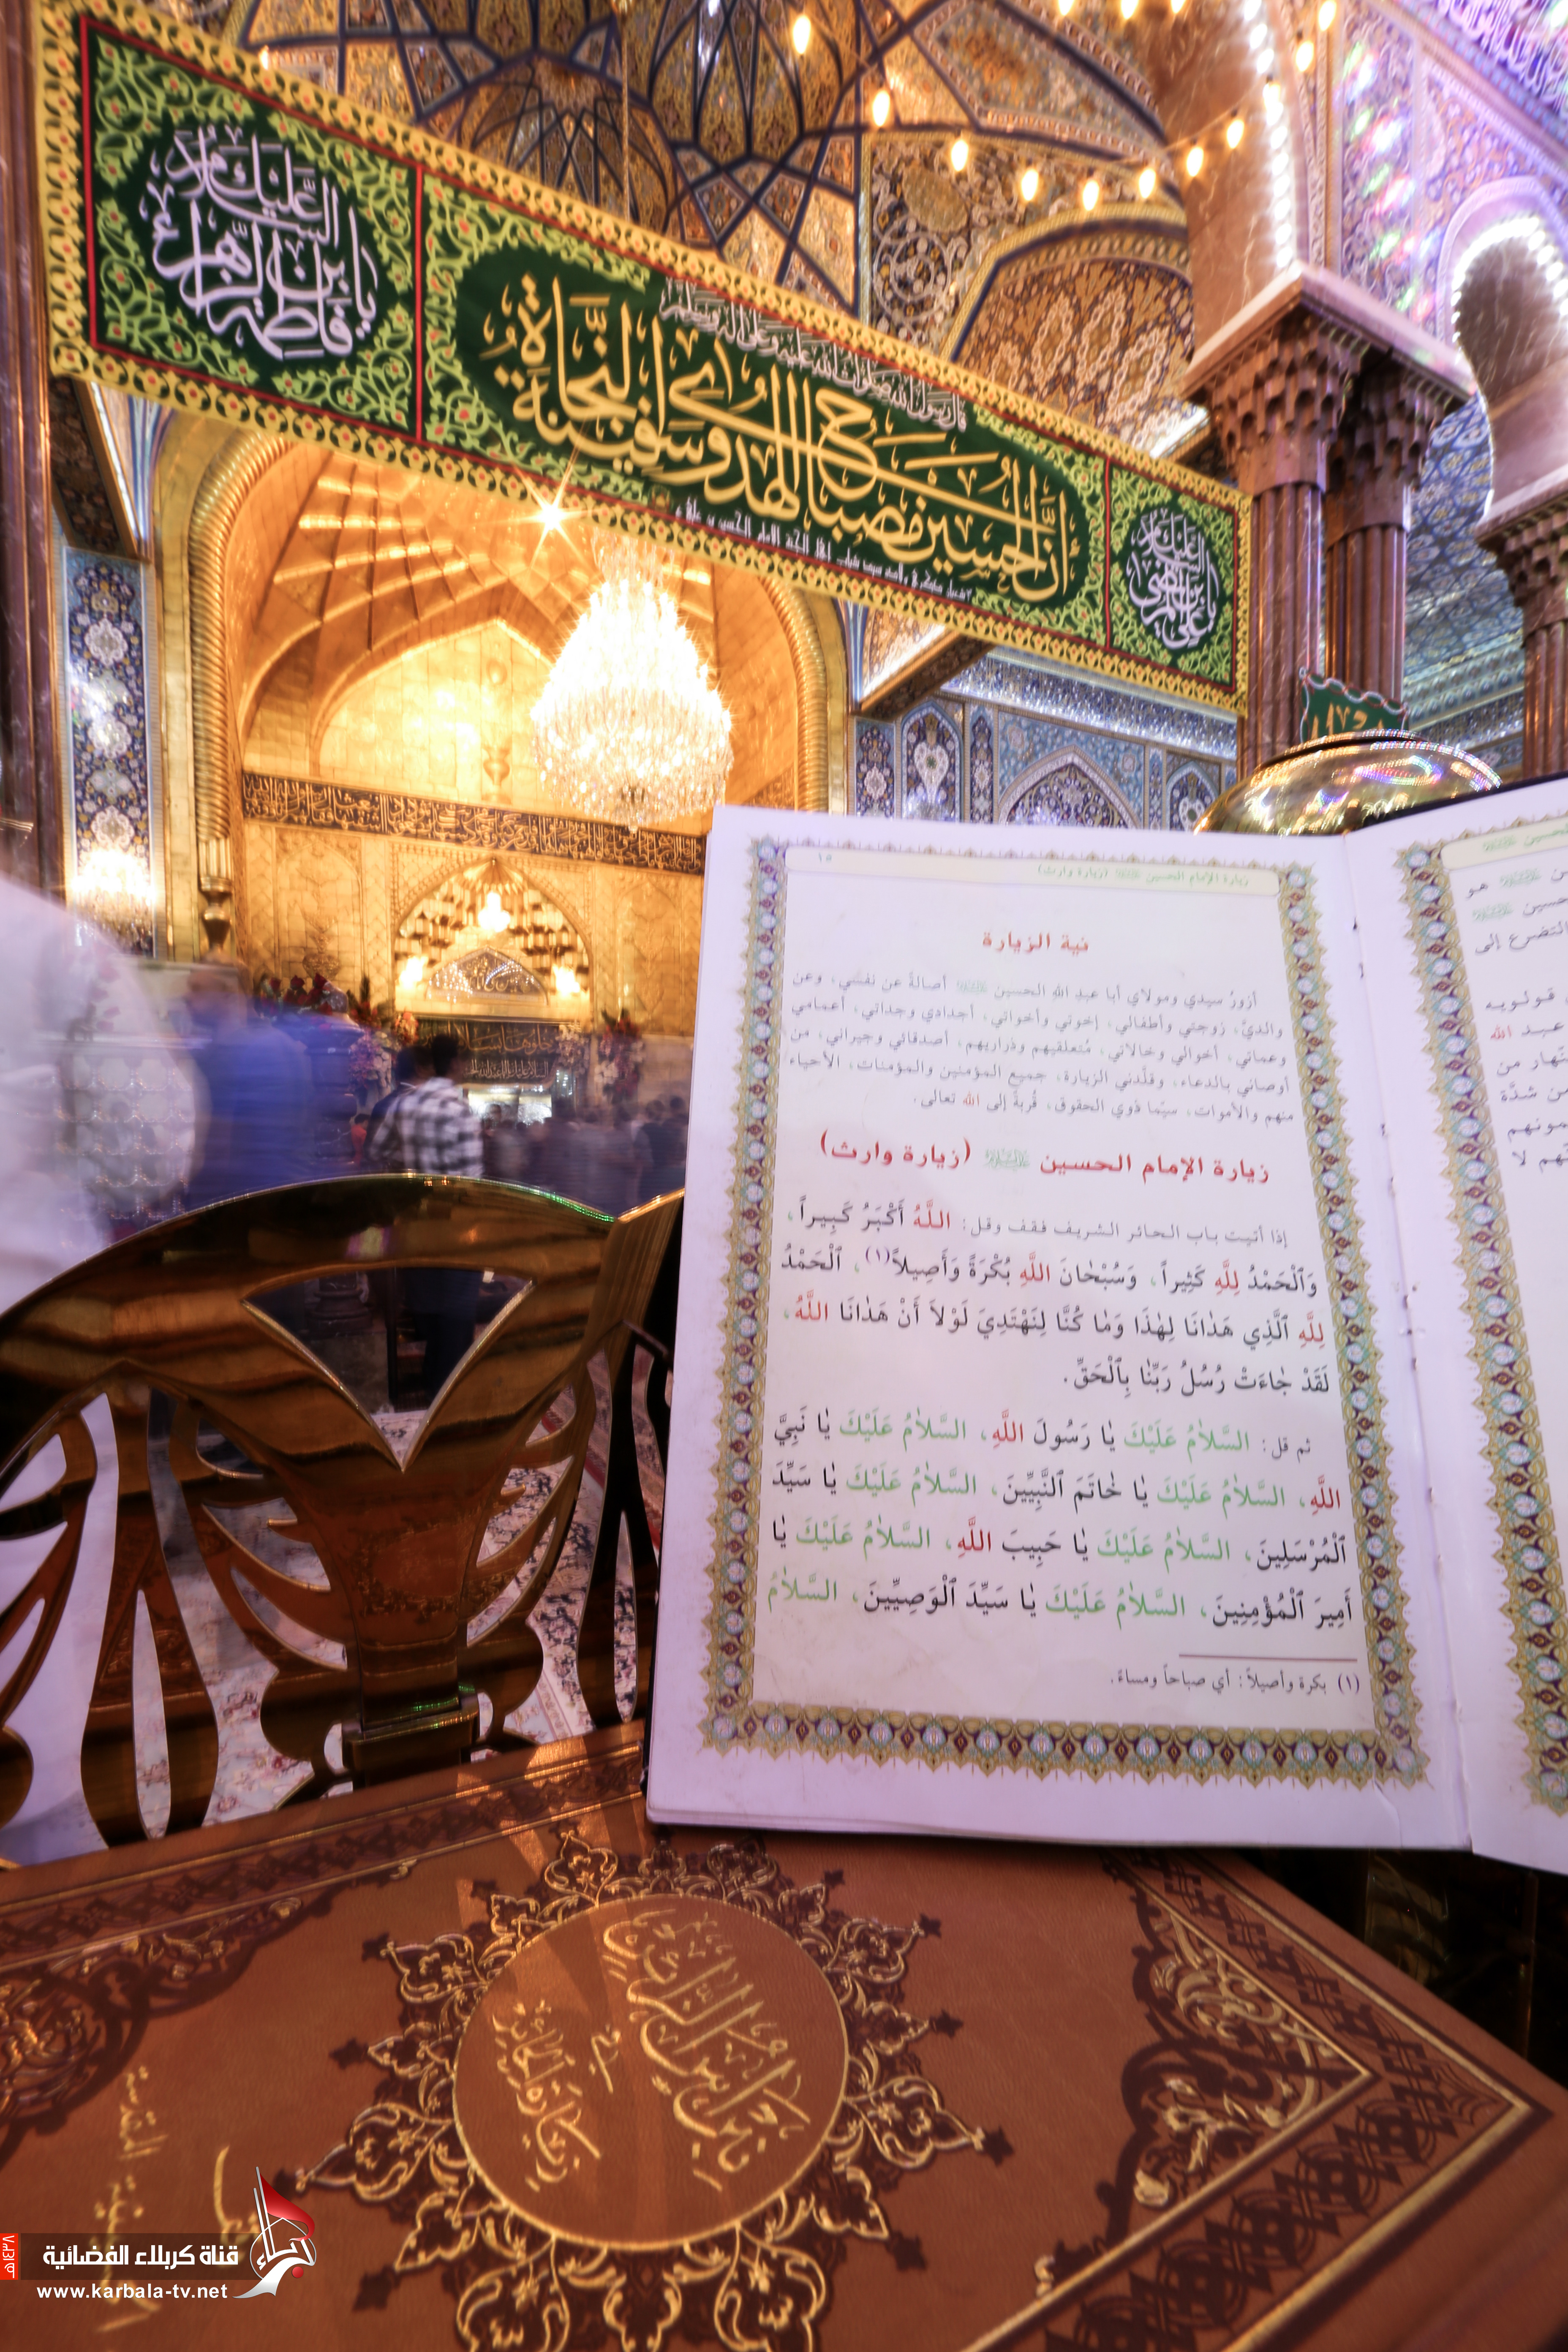 السلام عليك
يا بن فاطمة الزهراء
قال رسول الله صلوات الله عليه وعلى آله وسلم
إن الحسين مصباح الهدى وسفينة النجاة
السلام عليك
يا بن علي المرتضى
زيارة الإمام الحسين (زيارة وارث) ١٥
نية الزيارة
أزورُ سيدي ومولاي أبا عبدِ اللهِ الحسين أصالةً عن نفسي، وعن
والديَّ، زوجتي وأطفالي، إخوتي وأخواتي، أجدادي وجداتي، أعمامي
وعماتي، أخوالي وخالاتي، مُتعلقيهم وذراريهم، أصدقائي وجيراني، من
أوصاني بالدعاء، وقلّدني الزيارة، جميع المؤمنين والمؤمنات، الأحياء
منهم والأموات، سيّما ذوي الحقوق، قُربةً إلى الله تعالى.
زيارة الإمام الحسين (زيارة وارث)
إذا أتيت باب الحائر الشريف فقف وقل: اللَّهُ أَكْبَرُ كَبِيراً،
وَٱلْحَمْدُ لِلَّهِ كَثِيراً، وَسُبْحٰانَ اللَّهِ بُكْرَةً وَأَصِيلاً(١)، ٱلْحَمْدُ
لِلَّهِ ٱلَّذِي هَدٰانَا لِهٰذَا وَمٰا كُنَّا لِنَهْتَدِيَ لَوْلاَ أَنْ هَدٰانَا اللَّهُ،
لَقَدْ جٰاءَتْ رُسُلُ رَبِّنٰا بِٱلْحَقِّ.
ثم قل: السَّلاٰمُ عَلَيْكَ يٰا رَسُولَ اللَّهِ، السَّلاٰمُ عَلَيْكَ يٰا نَبِيَّ
اللَّهِ، السَّلاٰمُ عَلَيْكَ يٰا خٰاتَمَ ٱلنَّبِيِّينَ، السَّلاٰمُ عَلَيْكَ يٰا سَيِّدَ
ٱلْمُرْسَلِينَ، السَّلاٰمُ عَلَيْكَ يٰا حَبِيبَ اللَّهِ، السَّلاٰمُ عَلَيْكَ يٰا
أَمِيرَ ٱلْمُؤْمِنِينَ، السَّلاٰمُ عَلَيْكَ يٰا سَيِّدَ ٱلْوَصِيِّينَ، السَّلاٰمُ
(١) بكرة وأصيلاً: أي صباحاً ومساءً.
هو
حسين
التضرع إلى
قولويه
عبد الله
من شدَّة
هم لا
في
قناة كربلاء الفضائية
www.karbala-tv.net
١٤٣٨هـ